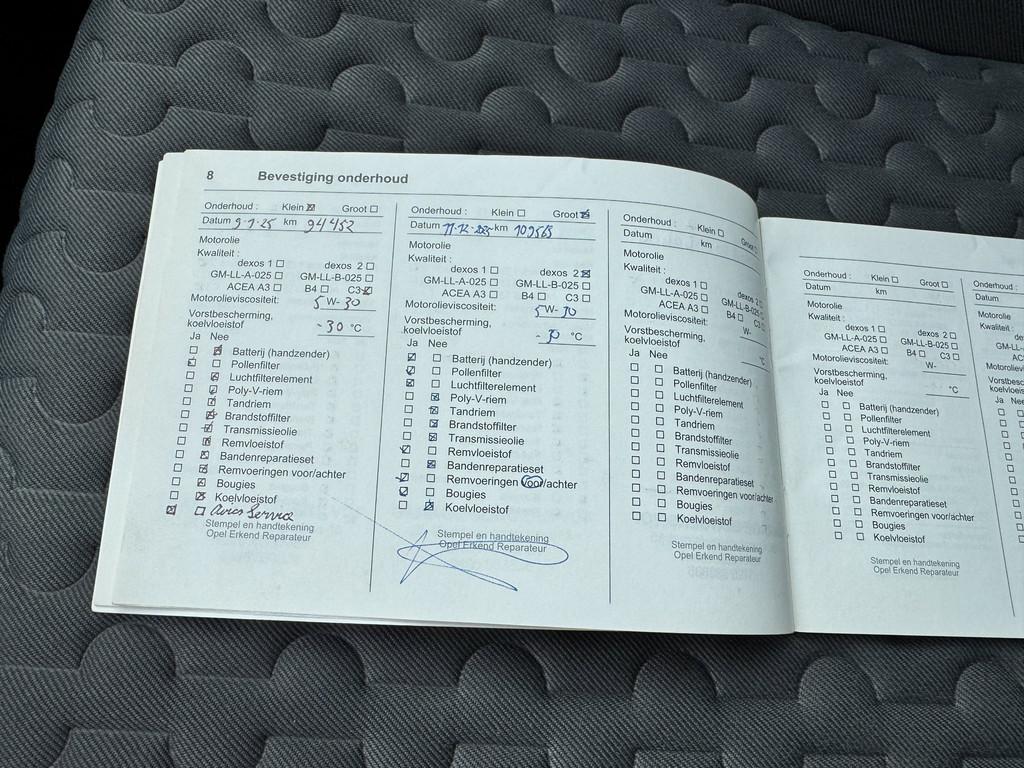 8 Bevestiging onderhoud
Onderhoud : Klein ☒ Groot ☐
Datum 9-1-25 km 94452
Motorolie
Kwaliteit :
dexos 1 ☐ dexos 2 ☐
GM-LL-A-025 ☐ GM-LL-B-025 ☐
ACEA A3 ☐ B4 ☐ C3 ☒
Motorolieviscositeit: 5 W- 30
Vorstbescherming,
koelvloeistof -30 °C
Ja Nee
☐ ☒ Batterij (handzender)
☒ ☐ Pollenfilter
☐ ☒ Luchtfilterelement
☐ ☒ Poly-V-riem
☐ ☒ Tandriem
☐ ☒ Brandstoffilter
☐ ☒ Transmissieolie
☐ ☒ Remvloeistof
☐ ☒ Bandenreparatieset
☐ ☒ Remvoeringen voor/achter
☐ ☒ Bougies
☐ ☒ Koelvloeistof
☒ ☐ Service
Stempel en handtekening
Opel Erkend Reparateur
Onderhoud : Klein ☐ Groot ☒
Datum 11-12-2025 km 109565
Motorolie
Kwaliteit :
dexos 1 ☐ dexos 2 ☒
GM-LL-A-025 ☐ GM-LL-B-025 ☐
ACEA A3 ☐ B4 ☐ C3 ☐
Motorolieviscositeit: 5 W- 30
Vorstbescherming,
koelvloeistof - 30 °C
Ja Nee
☒ ☐ Batterij (handzender)
☒ ☐ Pollenfilter
☒ ☐ Luchtfilterelement
☐ ☒ Poly-V-riem
☐ ☒ Tandriem
☐ ☒ Brandstoffilter
☐ ☒ Transmissieolie
☒ ☐ Remvloeistof
☐ ☒ Bandenreparatieset
☒ ☐ Remvoeringen voor/achter
☒ ☐ Bougies
☐ ☒ Koelvloeistof
Stempel en handtekening
Opel Erkend Reparateur
Onderhoud : Klein ☐ Groot ☐
Datum km
Motorolie
Kwaliteit :
dexos 1 ☐ dexos 2 ☐
GM-LL-A-025 ☐ GM-LL-B-025 ☐
ACEA A3 ☐ B4 ☐ C3 ☐
Motorolieviscositeit: W-
Vorstbescherming,
koelvloeistof °C
Ja Nee
☐ ☐ Batterij (handzender)
☐ ☐ Pollenfilter
☐ ☐ Luchtfilterelement
☐ ☐ Poly-V-riem
☐ ☐ Tandriem
☐ ☐ Brandstoffilter
☐ ☐ Transmissieolie
☐ ☐ Remvloeistof
☐ ☐ Bandenreparatieset
☐ ☐ Remvoeringen voor/achter
☐ ☐ Bougies
☐ ☐ Koelvloeistof
Stempel en handtekening
Opel Erkend Reparateur
Onderhoud : Klein ☐ Groot ☐
Datum km
Motorolie
Kwaliteit :
dexos 1 ☐ dexos 2 ☐
GM-LL-A-025 ☐ GM-LL-B-025 ☐
ACEA A3 ☐ B4 ☐ C3 ☐
Motorolieviscositeit: W-
Vorstbescherming,
koelvloeistof °C
Ja Nee
☐ ☐ Batterij (handzender)
☐ ☐ Pollenfilter
☐ ☐ Luchtfilterelement
☐ ☐ Poly-V-riem
☐ ☐ Tandriem
☐ ☐ Brandstoffilter
☐ ☐ Transmissieolie
☐ ☐ Remvloeistof
☐ ☐ Bandenreparatieset
☐ ☐ Remvoeringen voor/achter
☐ ☐ Bougies
☐ ☐ Koelvloeistof
Stempel en handtekening
Opel Erkend Reparateur
Onderhoud :
Datum
Motorolie
Kwaliteit :
GM-LL-
AC
Motorolievi
Vorstbesc
koelvloeis
Ja Nee